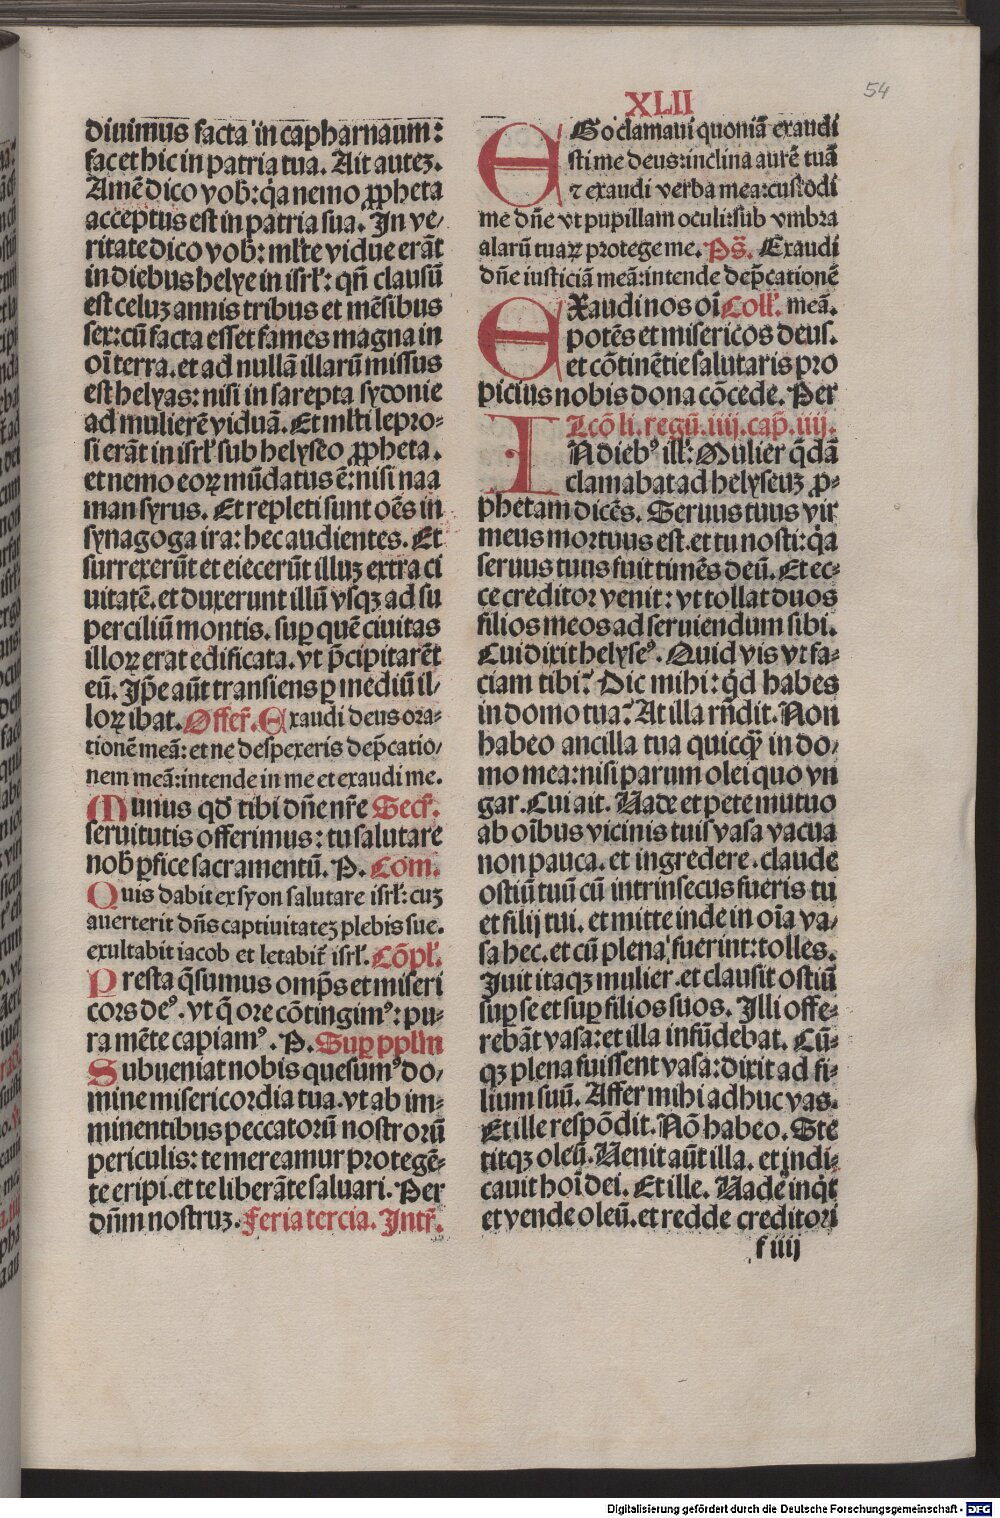 XLII
54
diuimus facta in capharnaum:
fac et hic in patria tua. Ait auteʒ.
Amē dico vob̄: q̄a nemo ꝓpheta
acceptus est in patria sua. In ve⸗
ritate dico vob̄: ml̄te vidue erāt
in diebus helye in isrl̄: qn̄ clausū
est celuʒ annis tribus et mēsibus
sex: cū facta esset fames magna in
oī terra. et ad nullā illarū missus
est helyas: nisi in sarepta sydonie
ad mulierē viduā. Et ml̄ti lepro⸗
si erāt in isrl̄ sub helyseo ꝓpheta.
et nemo eoꝝ mūdatus ē: nisi naa
man syrus. Et repleti sunt oēs in
synagoga ira: hec audientes. Et
surrexerūt et eiecerūt illuʒ extra ci
uitatē. et duxerunt illū vsqʒ ad su
perciliū montis. suꝑ quē ciuitas
illoꝝ erat edificata. vt p̄cipitarēt
eū. Ip̄e aūt transiens ꝑ mediū il⸗
loꝝ ibat. Offer̄. Exaudi deus ora⸗
tionē meā: et ne despexeris dep̄catio⸗
nem meā: intende in me et exaudi me.
Munus qd̄ tibi dn̄e nr̄e Secr̄.
seruitutis offerimus: tu salutare
nob̄ ꝑfice sacramentū. P. Com.
Quis dabit ex syon salutare isrl̄: cuʒ
auerterit dn̄s captiuitateʒ plebis sue.
exultabit iacob et letabit̄ isrl̄. Cōpl̄.
Presta q̄sumus omp̄s et miseri
cors deꝰ. vt q̄ ore cōtingimꝰ: pu⸗
ra mēte capiamꝰ. P. Suꝑ pplm̄
Subueniat nobis quesumꝰ do⸗
mine misericordia tua. vt ab im⸗
minentibus peccatorū nostrorū
periculis: te mereamur protegē⸗
te eripi. et te liberāte saluari. Per
dn̄m nostruʒ. Feria tercia. Intr̄.
EGo clamaui quoniā exaudi
sti me deus: inclina aurē tuā
⁊ exaudi verba mea: custodi
me dn̄e vt pupillam oculi: sub vmbra
alarū tuaꝝ protege me. Ps̄. Exaudi
dn̄e iusticiā meā: intende dep̄cationē
EXaudi nos oī Coll̄. meā.
potēs et misericors deus.
et cōtinētie salutaris pro
picius nobis dona cōcede. Per
Lcō li. regū. iiij. cap̄. iiij.
IN diebꝰ ill̄: Mulier q̄dā
clamabat ad helyseuʒ ꝓ⸗
phetam dicēs. Seruus tuus vir
meus mortuus est. et tu nosti: q̄a
seruus tuus fuit timēs deū. Et ec⸗
ce creditor venit: vt tollat duos
filios meos ad seruiendum sibi.
Cui dixit helyseꝰ. Quid vis vt fa⸗
ciam tibi? Dic mihi: q̄d habes
in domo tua? At illa rn̄dit. Non
habeo ancilla tua quicqꝫ in do⸗
mo mea: nisi parum olei quo vn
gar. Cui ait. Uade et pete mutuo
ab oībus vicinis tuis vasa vacua
non pauca. et ingredere. claude
ostiū tuū cū intrinsecus fueris tu
et filij tui. et mitte inde in oīa va⸗
sa hec. et cū plena fuerint: tolles.
Iuit itaqʒ mulier. et clausit ostiū
suꝑ se et suꝑ filios suos. Illi offe⸗
rebāt vasa: et illa infūdebat. Cū⸗
qʒ plena fuissent vasa: dixit ad fi⸗
lium suū. Affer mihi adhuc vas.
Et ille respōdit. Nō habeo. Ste
titqʒ oleū. Uenit aūt illa. et indi⸗
cauit hoī dei. Et ille. Uade inq̄t
et vende oleū. et redde creditori
f iiij
Digitalisierung gefördert durch die Deutsche Forschungsgemeinschaft - DFG